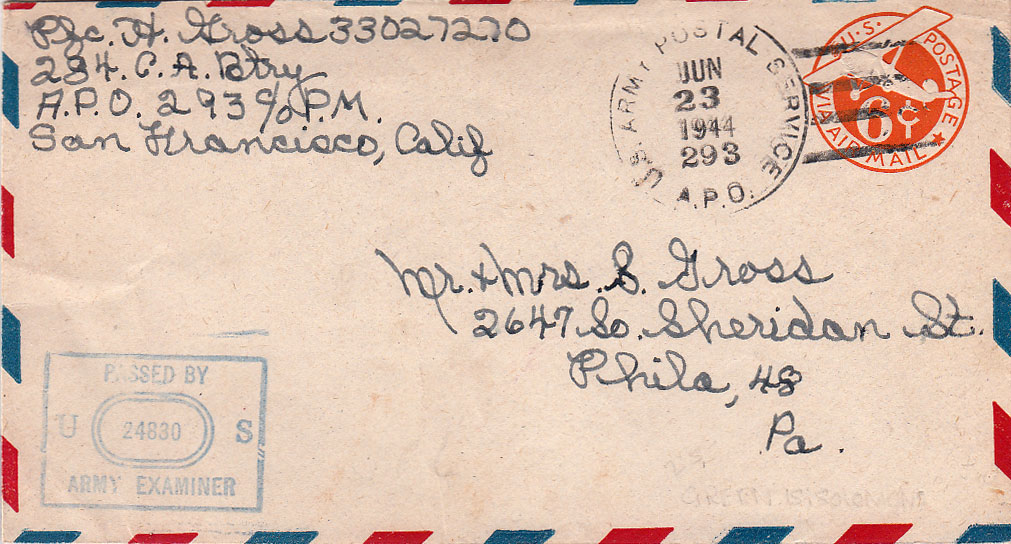 Pfc. H. Gross 33027270
234. C. A. Btry
A.P.O. 293 c/o P.M.
San Francisco, Calif
U.S. ARMY POSTAL SERVICE
JUN
23
1944
293
A.P.O.
U.S. POSTAGE
VIA AIR MAIL
6¢
Mr. & Mrs. S. Gross
2647 So. Sheridan St.
Phila, 48
Pa.
PASSED BY
U 24830 S
ARMY EXAMINER